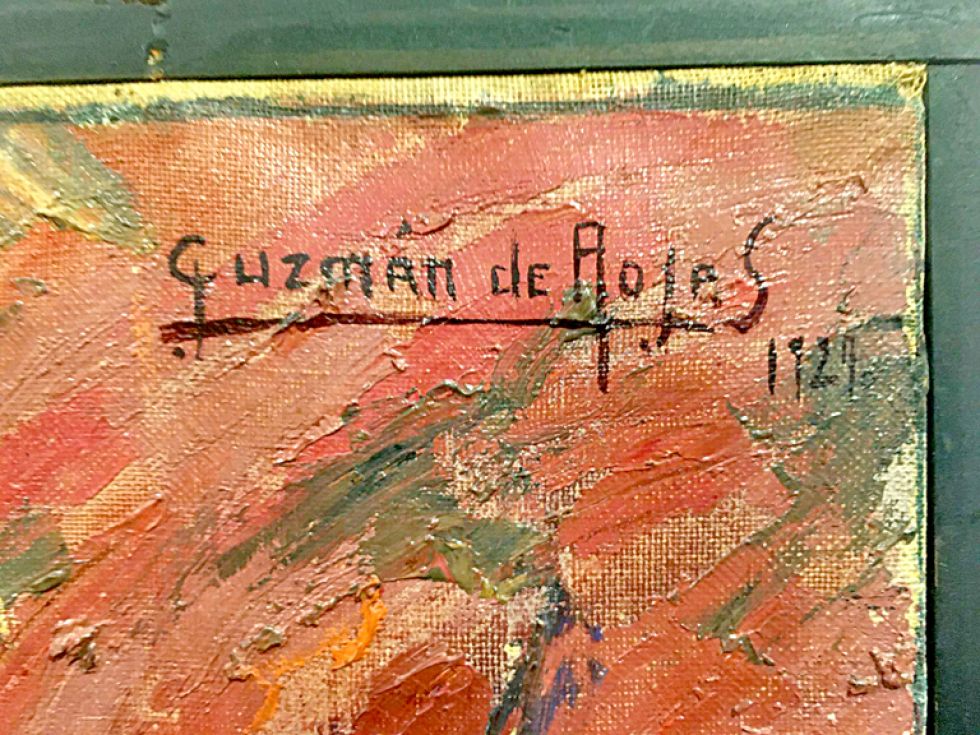 Guzmán de Rojas
1929.